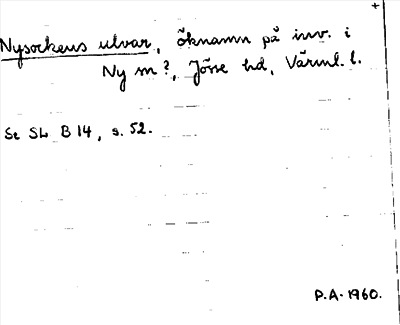 Nysockens ulvar, öknamn på inv. i
Ny sn?, Jösse hd, Värml. l.
Se SL B 14, s. 52.
P.A. 1960.